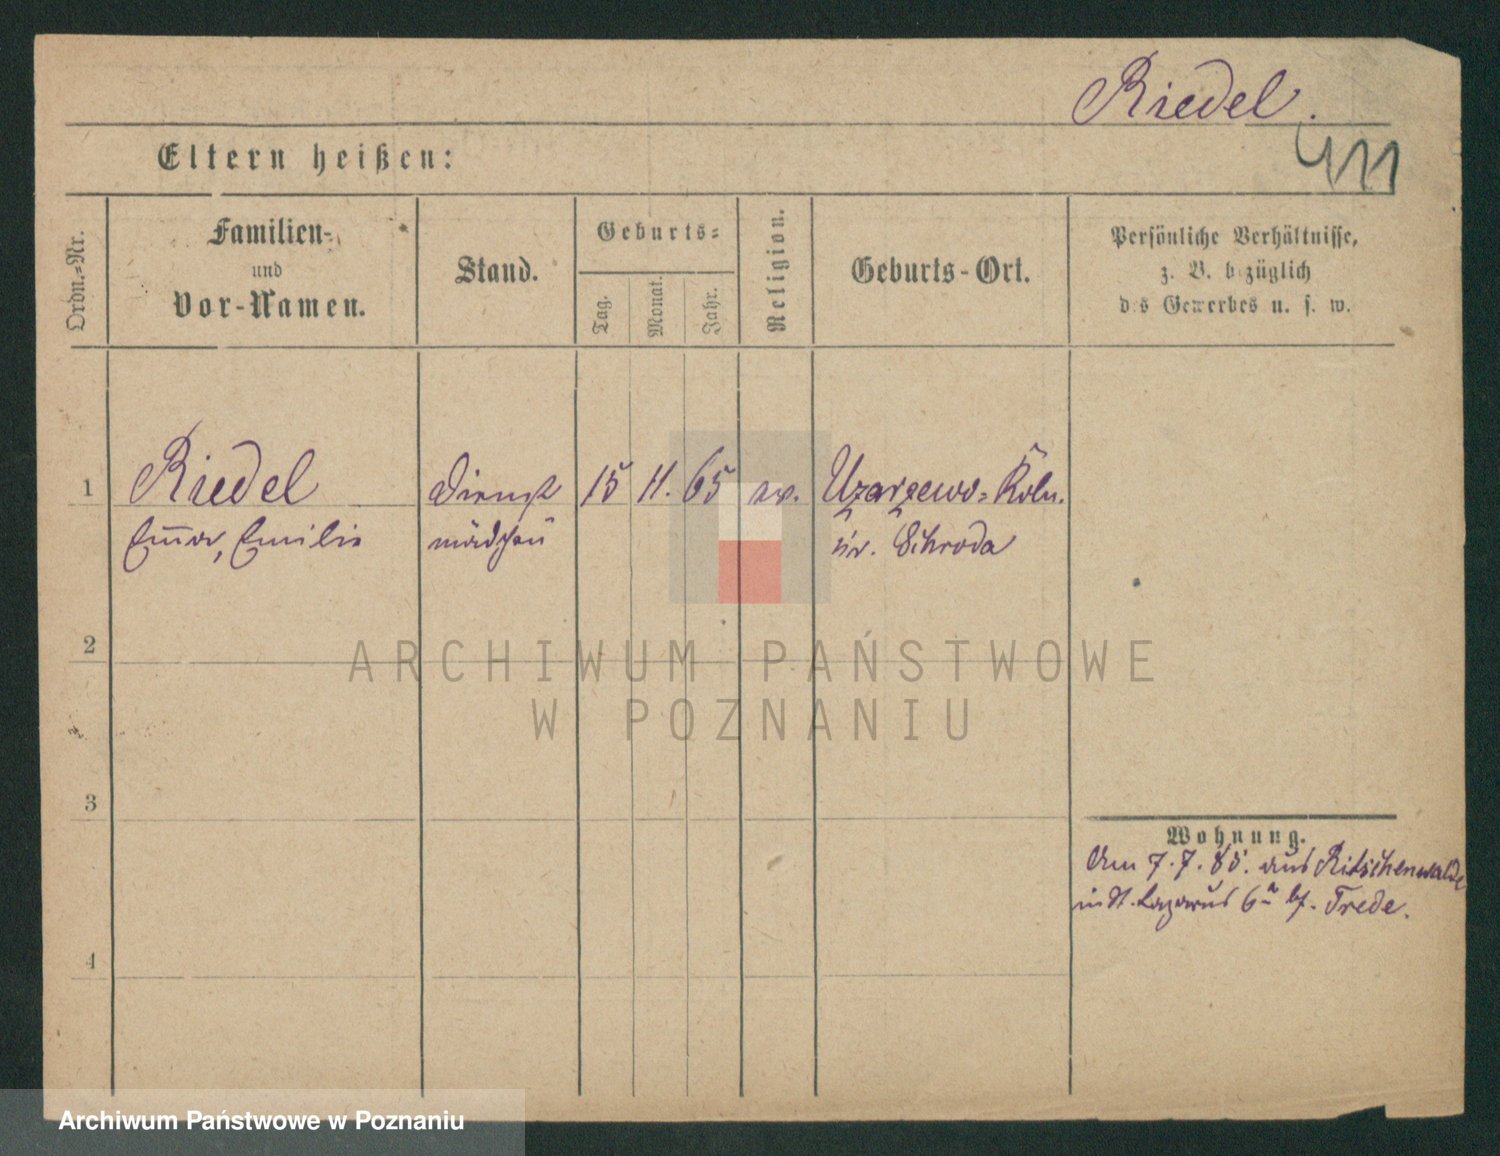 Riedel.
411
Eltern heißen:
Ordn.-Nr.
Familien-
und
Vor-Namen.
Stand.
Geburts-
Tag.
Monat.
Jahr.
Religion.
Geburts-Ort.
Persönliche Verhältnisse,
z. B. bezüglich
des Gewerbes u. s. w.
1
Riedel
Emma, Emilie
Dienst
mädchen
15
11.
65
ev.
Uzarzewo-Köln.
Kr. Schroda
2
3
4
Wohnung.
Am 7.7.85. aus Ritschenwalde
in St. Lazarus 6a bei Trede.
ARCHIWUM PAŃSTWOWE
W POZNANIU
Archiwum Państwowe w Poznaniu